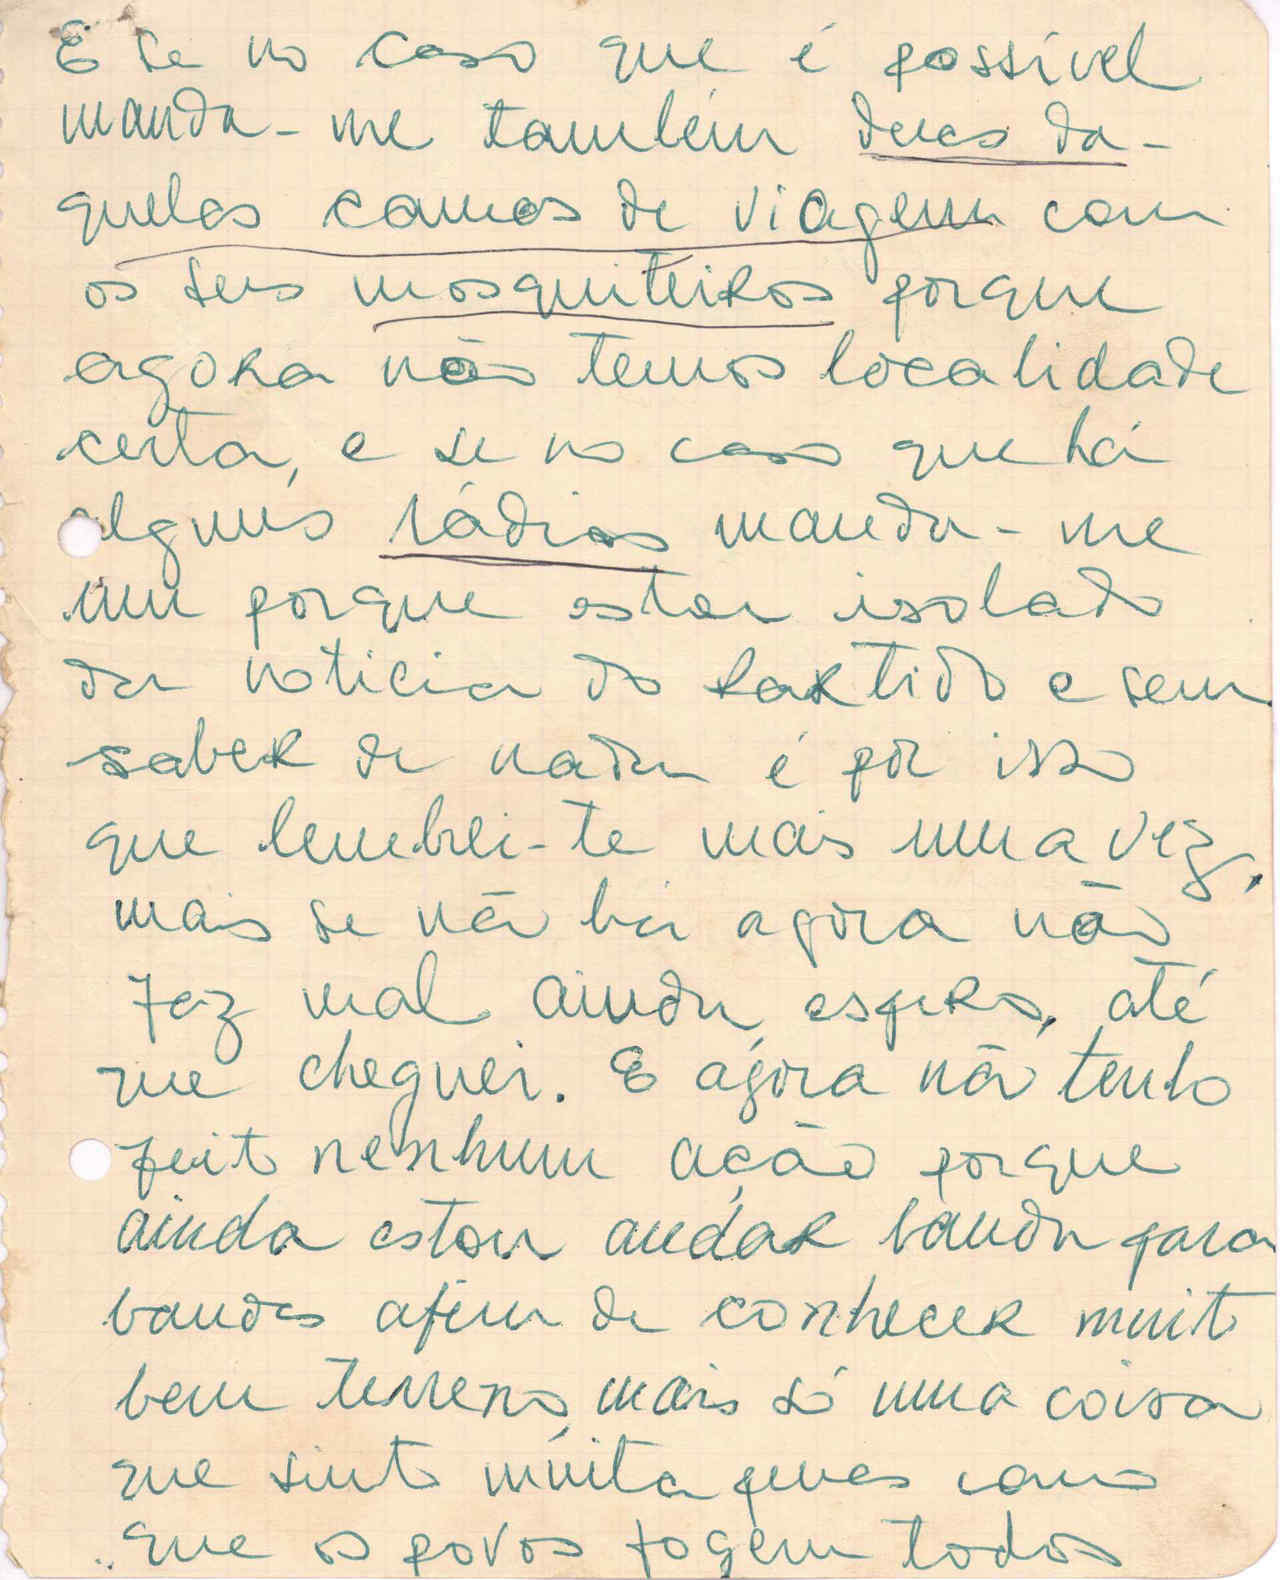 E se no caso que é possível
manda-me também duas da-
quelas camas de viagem com
os seus mosquiteiros porque
agora não temos localidade
certa, e se no caso que há
alguns rádios manda-me
um porque estou isolado
da noticia do Partido e sem
saber de nada é por isso
que lembrei-te mais uma vez,
mais se não há agora não
faz mal ainda espero, até
que cheguei. E agora não tenho
feito nenhum ação porque
ainda estou andar banda para
bandas afim de conhecer muito
bem terreno, mais só uma coisa
que sinto muita pena como
que os povos fogem todos